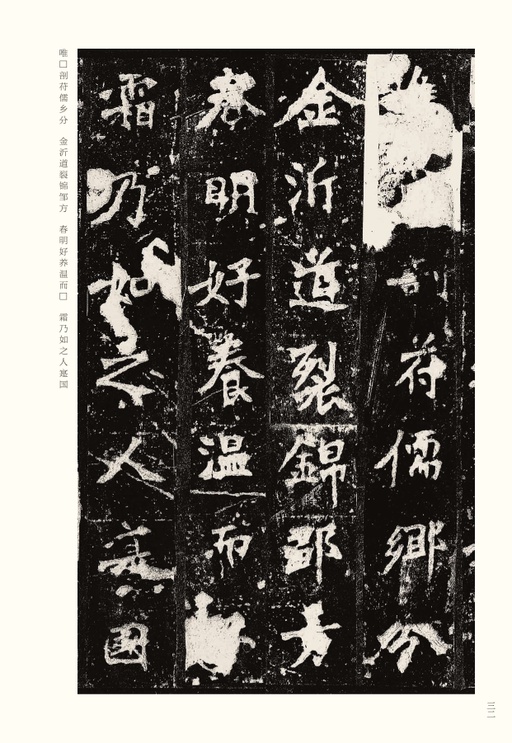 剖苻儒鄉分
金沂道裂錦鄒方
春明好養温而
霜乃如之人寔國
唯□剖苻儒乡分　金沂道裂锦邹方　春明好养温而□　霜乃如之人寔国
三二